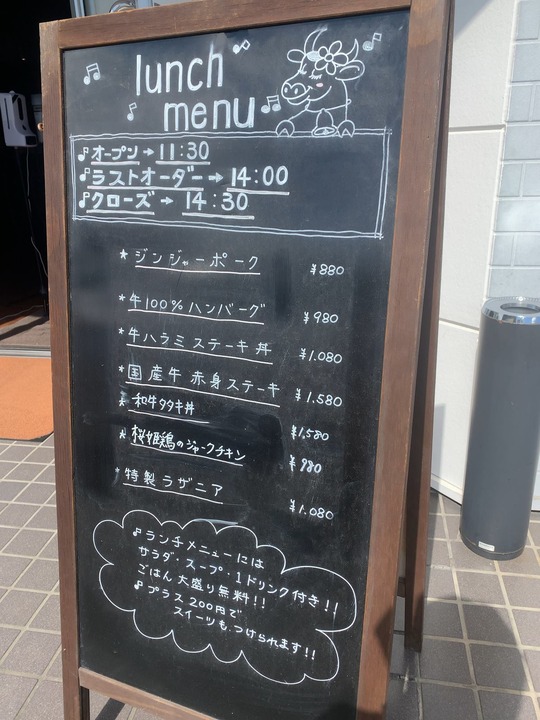 lunch
menu
オープン→11:30
ラストオーダー→14:00
クローズ→14:30
*ジンジャーポーク ¥880
*牛100%ハンバーグ ¥980
*牛ハラミステーキ丼 ¥1.080
*国産牛 赤身ステーキ ¥1.580
*和牛タタキ丼 ¥1,580
*桜姫鶏のジャークチキン ¥980
*特製ラザニア ¥1.080
♪ランチメニューには
サラダ・スープ・1ドリンク付き!!
ごはん大盛り無料!!
♪プラス200円で
スイーツも、つけられます!!